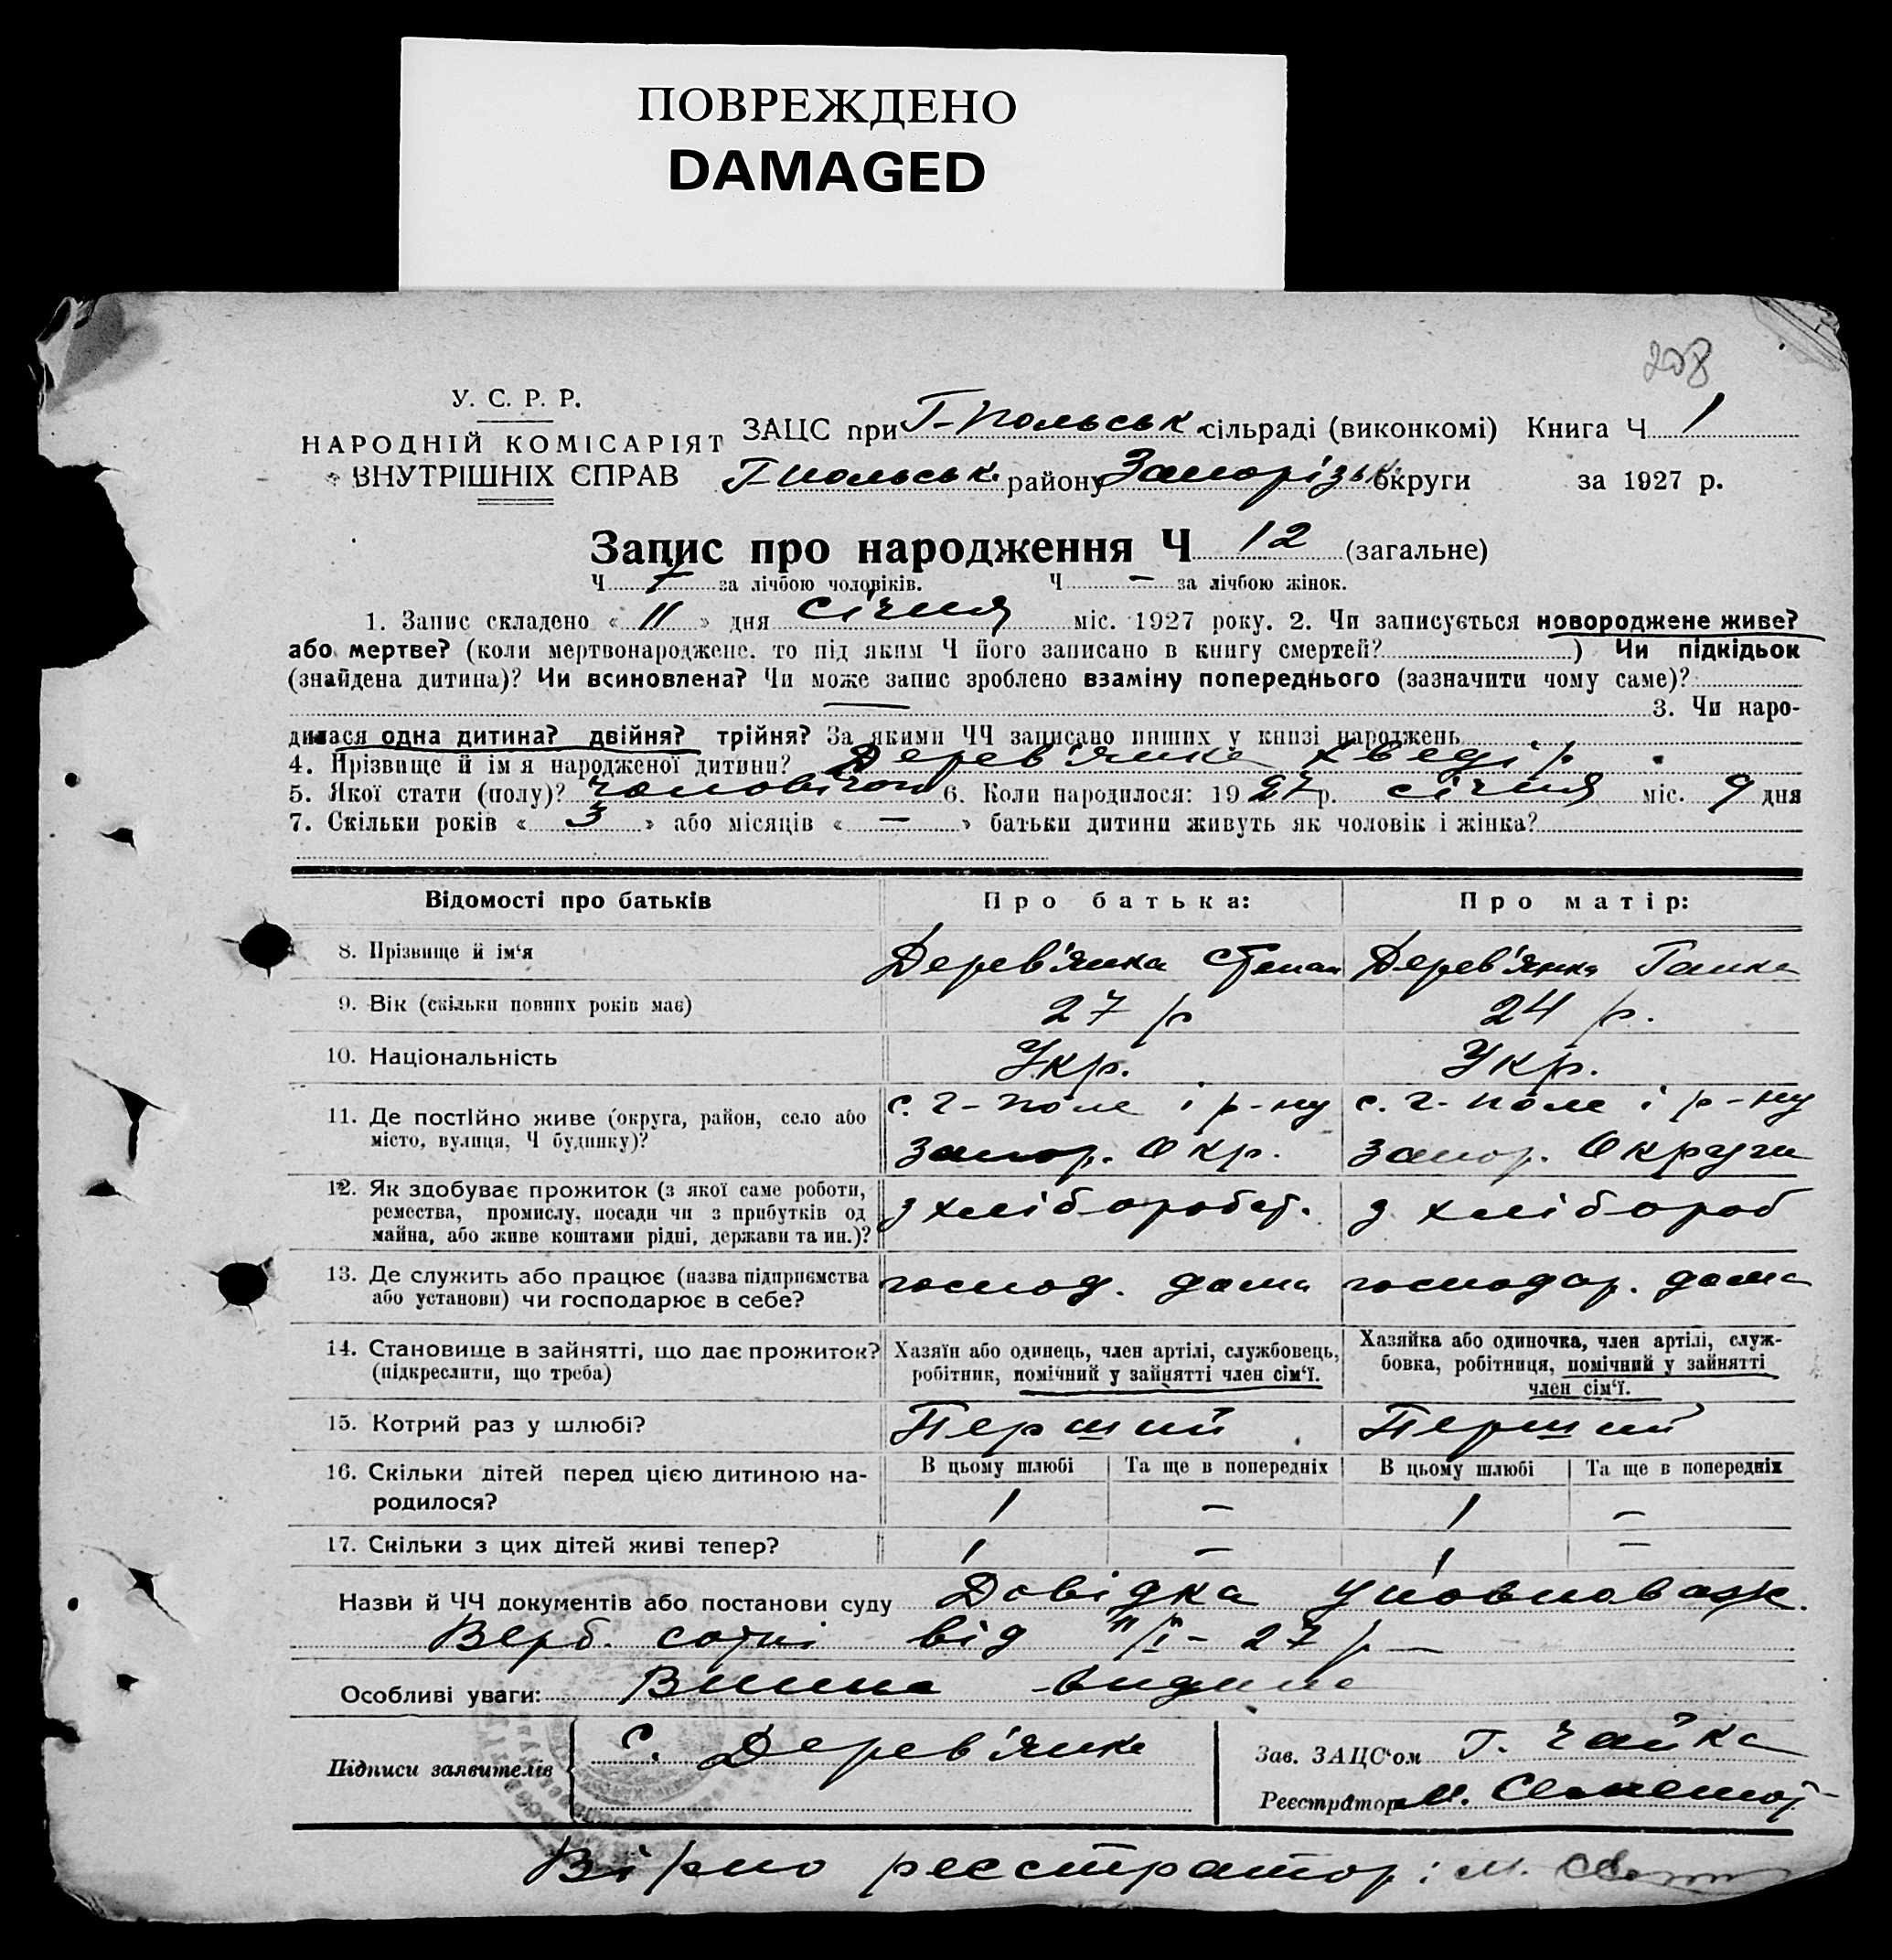 ПОВРЕЖДЕНО
DAMAGED
208
У. С. Р. Р.
НАРОДНІЙ КОМІСАРІЯТ
ВНУТРІШНІХ СПРАВ
ЗАЦС при Г-польськ. сільраді (виконкомі) Книга Ч 1
Г польськ. району Запорізьк. округи за 1927 р.
Запис про народження Ч 12 (загальне)
Ч 7 за лічбою чоловіків. Ч — за лічбою жінок.
1. Запис складено « 11 » дня січня міс. 1927 року. 2. Чи записується новороджене живе?
або мертве? (коли мертвонароджене, то під яким Ч його записано в книгу смертей? ) Чи підкідьок
(знайдена дитина)? Чи всиновлена? Чи може запис зроблено взаміну попереднього (зазначити чому саме)?
— 3. Чи наро-
дилася одна дитина? двійня? трійня? За якими ЧЧ записано инших у книзі народжень
4. Прізвище й ім я народженої дитини? Дерев'янка
5. Якої стати (полу)? чоловічої 6. Коли народилося: 19 27 р. січня міс. 9 дня
7. Скільки років « 3 » або місяців « — » батьки дитини живуть як чоловік і жінка?
Відомості про батьків Про батька: Про матір:
8. Прізвище й ім'я Дерев'янка Степан Дерев'янка Ганка
9. Вік (скільки повних років має) 27 р 24 р.
10. Національність Укр. Укр.
11. Де постійно живе (округа, район, село або
місто, вулиця, Ч будинку)?
с. Г-поле і р-ну
запор. Окр.
с. Г-поле і р-ну
запор. Округи
12. Як здобуває прожиток (з якої саме роботи,
ремества, промислу, посади чи з прибутків од
майна, або живе коштами рідні, держави та ин.)?
з хліборобст. з хлібороб
13. Де служить або працює (назва підприємства
або установи) чи господарює в себе?
господ. дома господар. дома
14. Становище в зайнятті, що дає прожиток?
(підкреслити, що треба)
Хазяїн або одинець, член артілі, службовець,
робітник, помічний у зайнятті член сім'ї.
Хазяйка або одиночка, член артілі, служ-
бовка, робітниця, помічний у зайнятті
член сім'ї.
15. Котрий раз у шлюбі? Перший Перший
16. Скільки дітей перед цією дитиною на-
родилося?
В цьому шлюбі Та ще в попередніх В цьому шлюбі Та ще в попередніх
1 — 1 —
17. Скільки з цих дітей живі тепер? 1 — 1 —
Назви й ЧЧ документів або постанови суду Довідка уповноваж.
Верб. сотні від 11/I - 27 р
Особливі уваги: видана
Підписи заявителів С. Дерев'янка
Зав. ЗАЦС'ом Г. Чайка
Реєстратор М.
Вірно реєстратор: М.